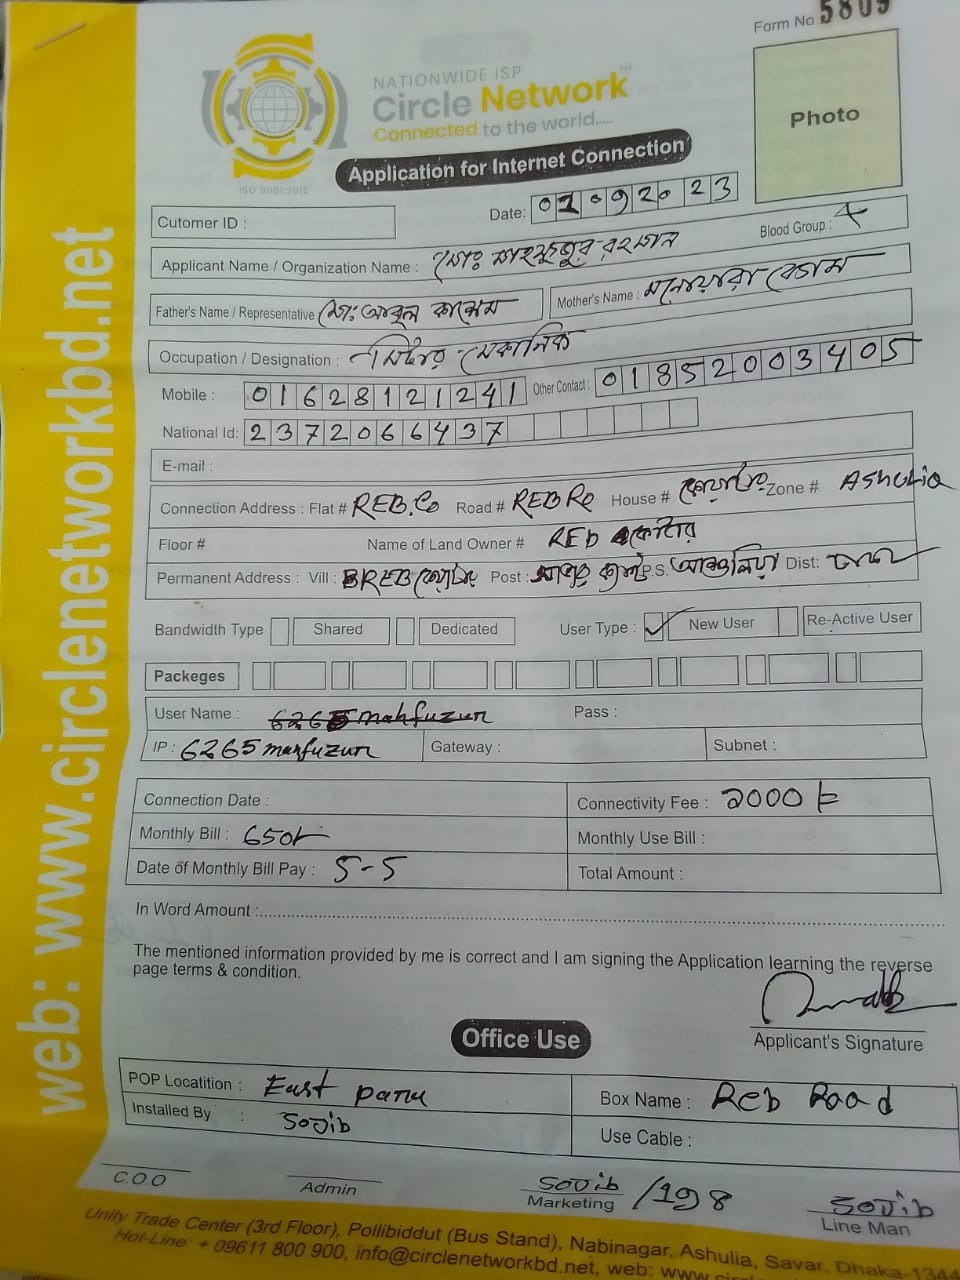 Form No 5809
NATIONWIDE ISP
Circle Network
Connected to the world.....
ISO 9001:2015
Photo
Application for Internet Connection
Date: 01092023
Cutomer ID :
Applicant Name / Organization Name : মোঃ মাহফুজুর রহমান Blood Group :
Father's Name / Representative মোঃ আবুল কাশেম Mother's Name : মনোয়ারা বেগম
Occupation / Designation : মিটার মেকানিক
Mobile : 01628121241 Other Contact : 01852003405
National Id: 2372066437
E-mail :
Connection Address : Flat # REB.Co Road # REB Ro House # Zone # Ashulia
Floor # Name of Land Owner # REb কোয়াটার
Permanent Address : Vill : REB Post : P.S. আশুলিয়া Dist: ঢাকা
Bandwidth Type Shared Dedicated User Type : New User Re-Active User
Packeges
User Name : 6265 mahfuzur Pass :
IP : 6265 mahfuzur Gateway : Subnet :
Connection Date : Connectivity Fee : ১000 ৳
Monthly Bill : 650/- Monthly Use Bill :
Date of Monthly Bill Pay : 5-5 Total Amount :
In Word Amount :
The mentioned information provided by me is correct and I am signing the Application learning the reverse
page terms & condition.
Applicant's Signature
Office Use
POP Locatition : East Para Box Name : Reb Road
Installed By : Sojib Use Cable :
C.O.O Admin Sojib /198 Marketing Sojib Line Man
Unity Trade Center (3rd Floor), Pollibiddut (Bus Stand), Nabinagar, Ashulia, Savar, Dhaka-1344
Hot-Line: + 09611 800 900, info@circlenetworkbd.net, web: www.circlenetworkbd.net
web: www.circlenetworkbd.net